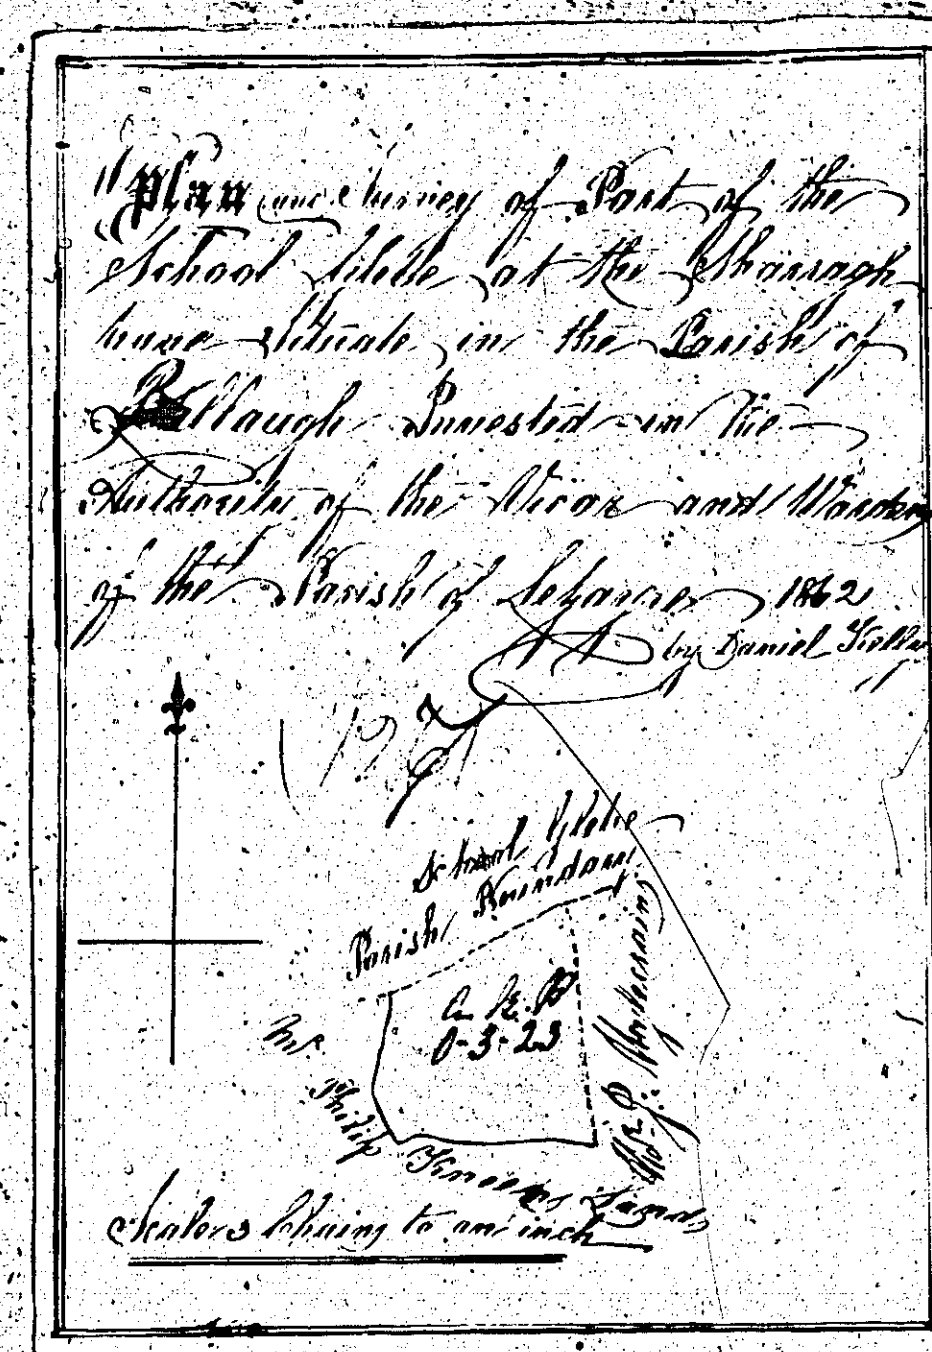 "Plan and Survey of Part of the
School Glebe at the Dhanagh
hune Situate in the Parish of
Ballaugh Invested in the
Authority of the Vicar and Wardens
of the Parish of Lezayre 1862
by Daniel Kelly
School Glebe
Parish Boundary
A. R. P
0-3-23
Mr
Philip
Kneens Lands
Remaining
Scale 3 Chains to an inch